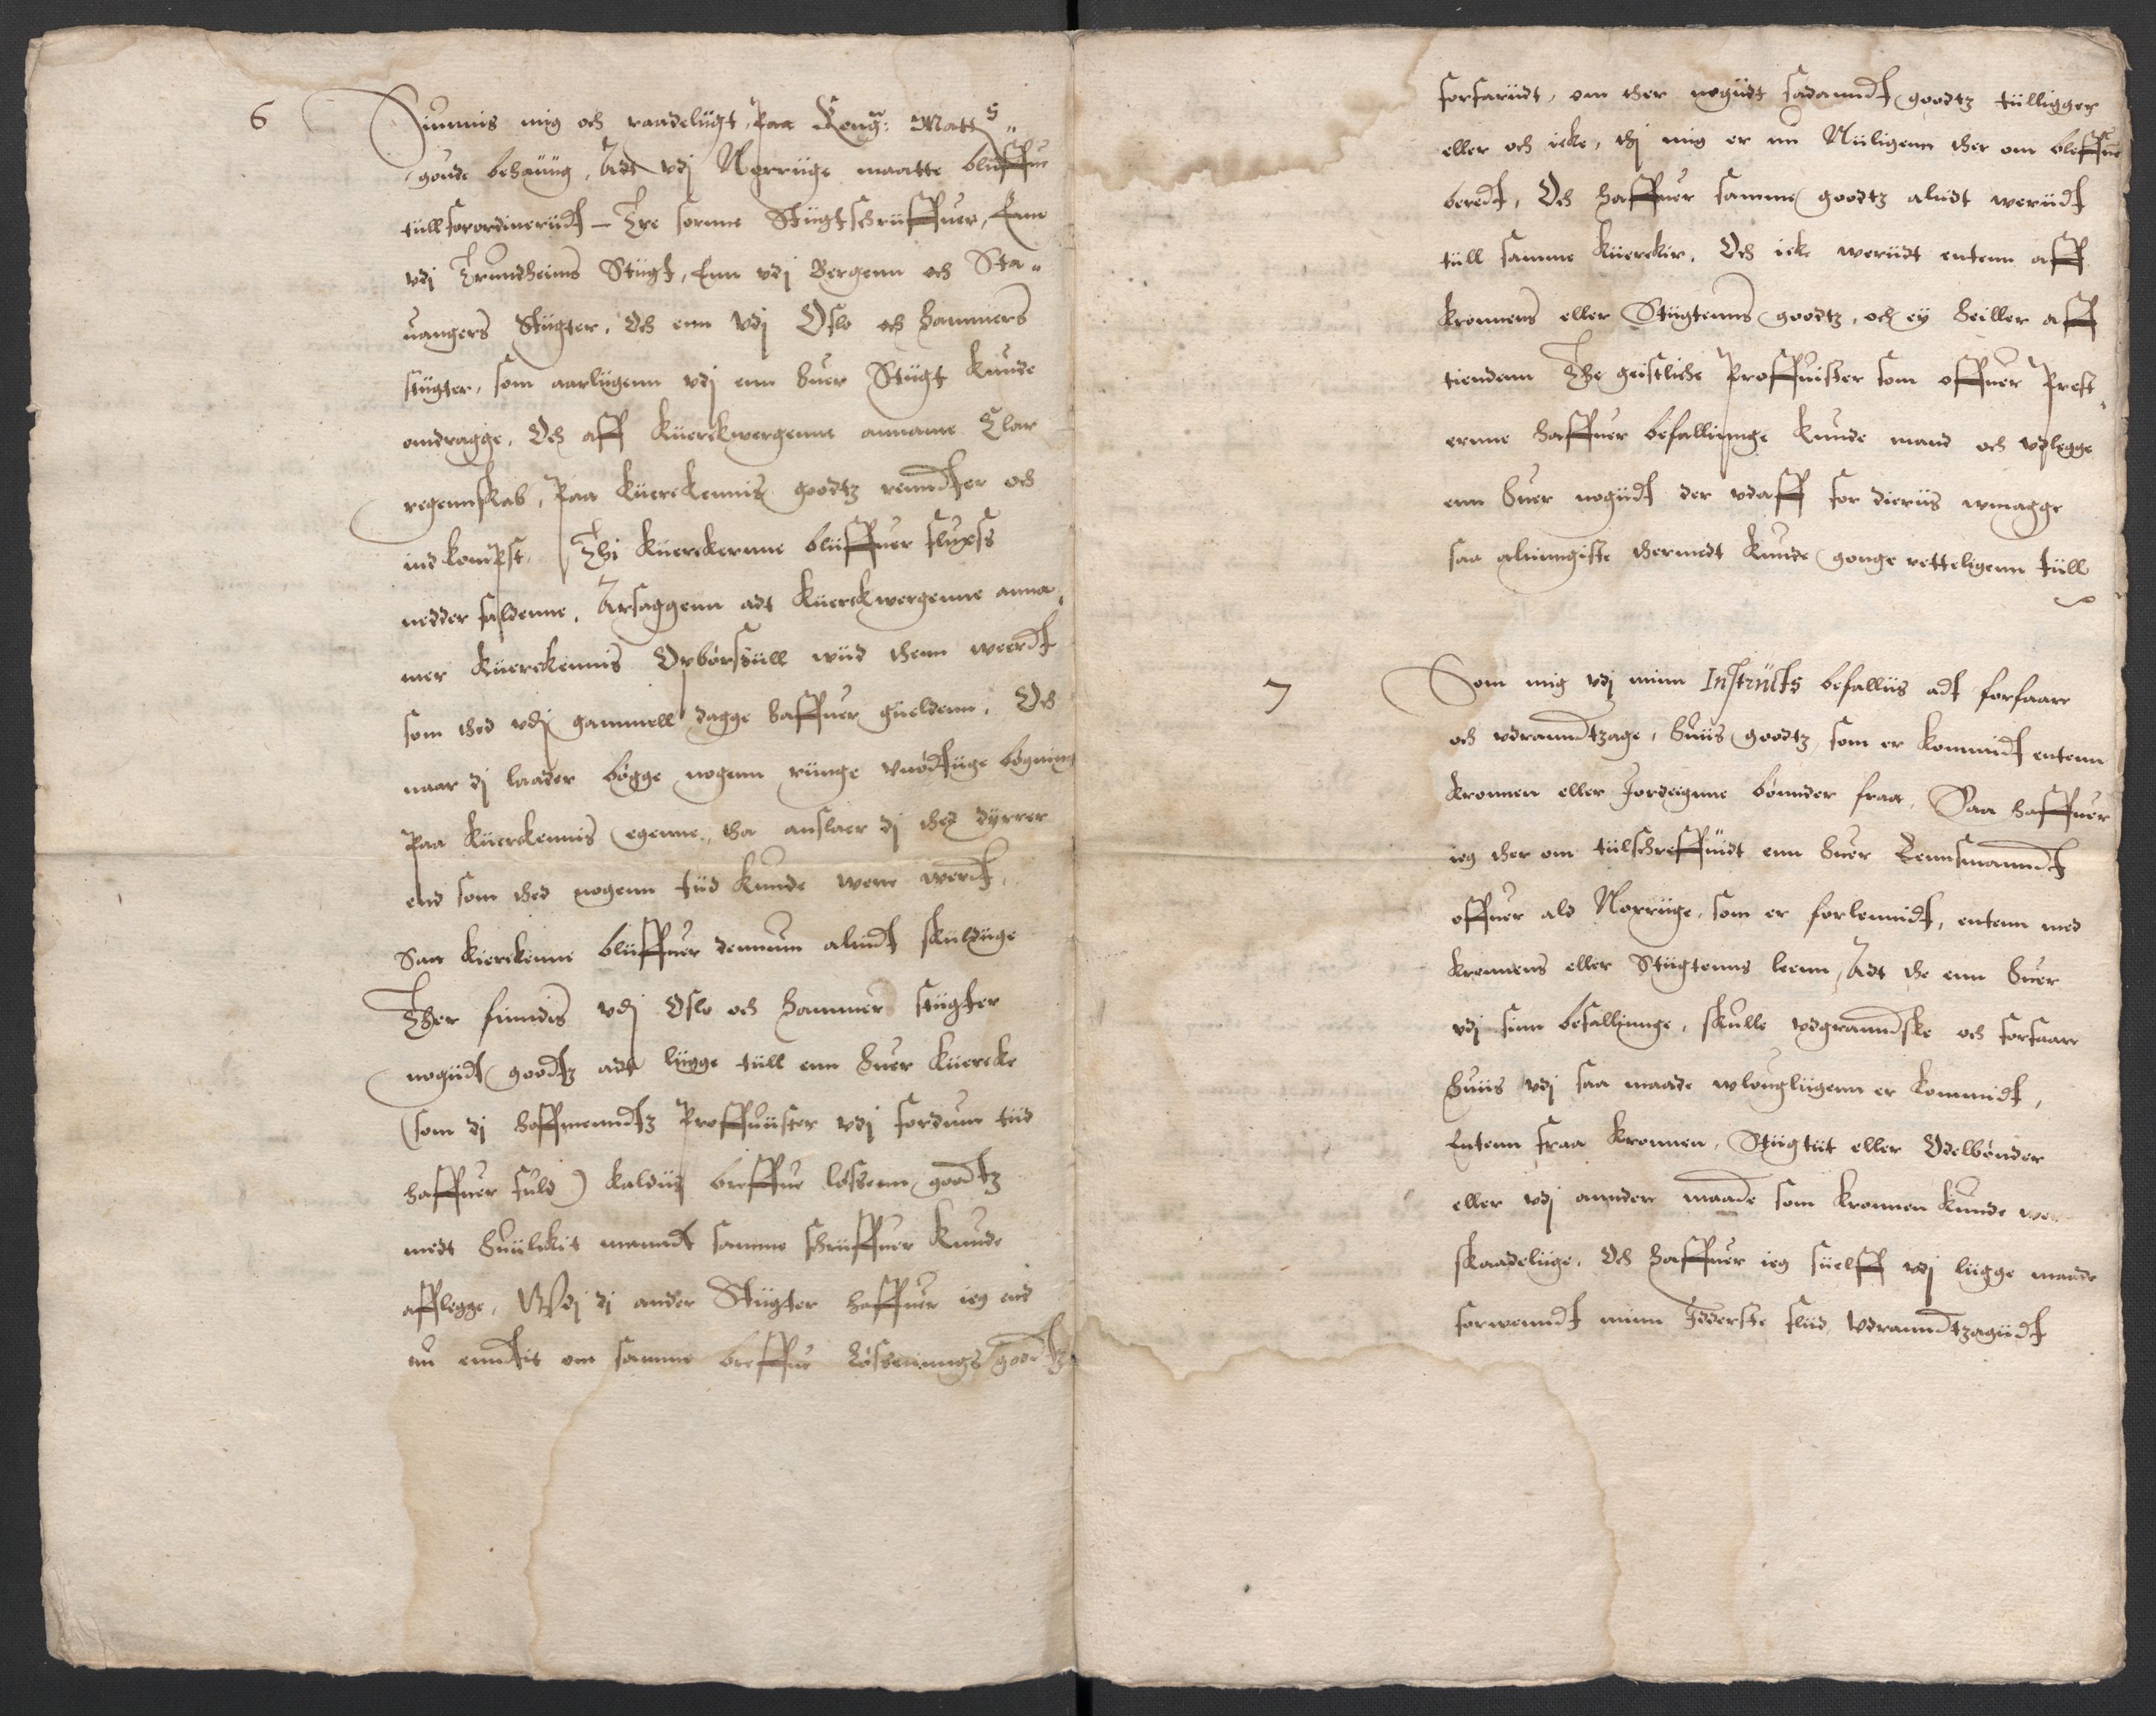 6
Siunnis mig och raadeligt, Paa Kong: Matts
goude behaüüg, Adt vdj Norrüge maatte bliffue
tüllforordinerüdt – Tre fornne Stügtschriffuer, Enn
vdj Trundheims Stügt, Enn vdj Bergenn och Sta„
uangers Stügter, Och enn Vdj Oslo och Hammers
stügter, som aarlügenn vdj enn huer Stügt kunde
omdragge, Och aff Küerckwergenne annamme Clar
regennskab, Paa Küerckennis goodtz renndter och
indkompst, Thi Küerckernne bliiffuer slüxss
nedder faldenne, Arsaggenn adt Küerckwergenne anna„
mer Küerckennis Opbörssüll wüd thenn weerdt
som thed vdj gammell dagge haffuer güeldenn, Och
naar dj laader bögge nogenn rünge vnödtüge bögning
Paa Küerckennis egenne, tha anslaer dj thed dyrrer
end som thed nogenn tüd kunde were werdt,
Saa kierckenne bliiffuer dennum altüdt sküldüge
Ther finndis vdj Oslo och Hammers stügter
nogüdt goodtz adt lügge tüll enn huer Küercke
(som dj hoffmenndtz Proffuüster vdj fordum tüd
haffuer süld) kaldüs breffue lössenn goodtz
medt huülckit manndt samme schriffuer kunde
afflegge, Wdj dj ander Stügter haffuer ieg end
nu enndtit om samme breffue Lössennings goodtz
forfarüdt, om ther nogüdt sadanndt goodtz tülligger
eller och icke, thj mig er nu Nüligenn ther om bleffue
beredt, Och haffuer samme goodtz altidt werüdt
tüll samme Küerckir, Och icke werüdt entenn aff
kronnens eller Stügtenns goodtz, och ey heiller aff
tiendenn The geistliche Proffuister som offuer Prest„
ernne haffuer befallinnge kunde mand och vdlegge
enn huer nogüdt der vdaff for dieriis wmagge
saa alinngiste thermedt kunde gonge retteligenn tüll
7
Som mig vdj minn Instructs befallüs adt forfaare
och vdranndtzage, huüs goodtz som er kommidt entenn
kronnen eller Jordeignne bönnder fraa, Saa haffuer
ieg ther om tülschreffuidt enn huer Lennsmanndt
offuer ald Norrüge, som er forlennidt, entenn med
kronnens eller Stügtenns leenn, Adt the enn huer
vdj sinn befallinnge, skulle vdgranndske och forfaare
huüs vdj saa maade wlouglügenn er kommidt,
Entenn fraa kronnen, Stügtüt eller Odelbönder
eller vdj anndere maade som kronnen kunde were
skaadelüge, Och haffuer ieg siielff vdj lügge maade
forwenndt minn Idderste fliid, Vdranndtzagüdt